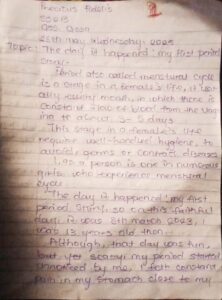 Precious Fidelis
SS2B
Ass. Gssn
28th May, Wednesday, 2025
Topic: The day it happened 'my first period
Story'
Period also called menstural cycle
is a Stage in a female's life, it usu
ally every month, in which there is
Constant flow of blood from the vag
ina to about 3-5 days
This Stage in a female's life
require well-handled hygiene, to
avoid germs or contract diseases
I as a person is one in numerous
girls who experience menstural
cycle
The day it happened 'my first
period story', so on this faithful
day, it was 8th March 2023, I
was 13 years old then
Although, that day was fun
but yet scary, my period started
unnoticed by me, I felt constant
pain in my stomach close to my